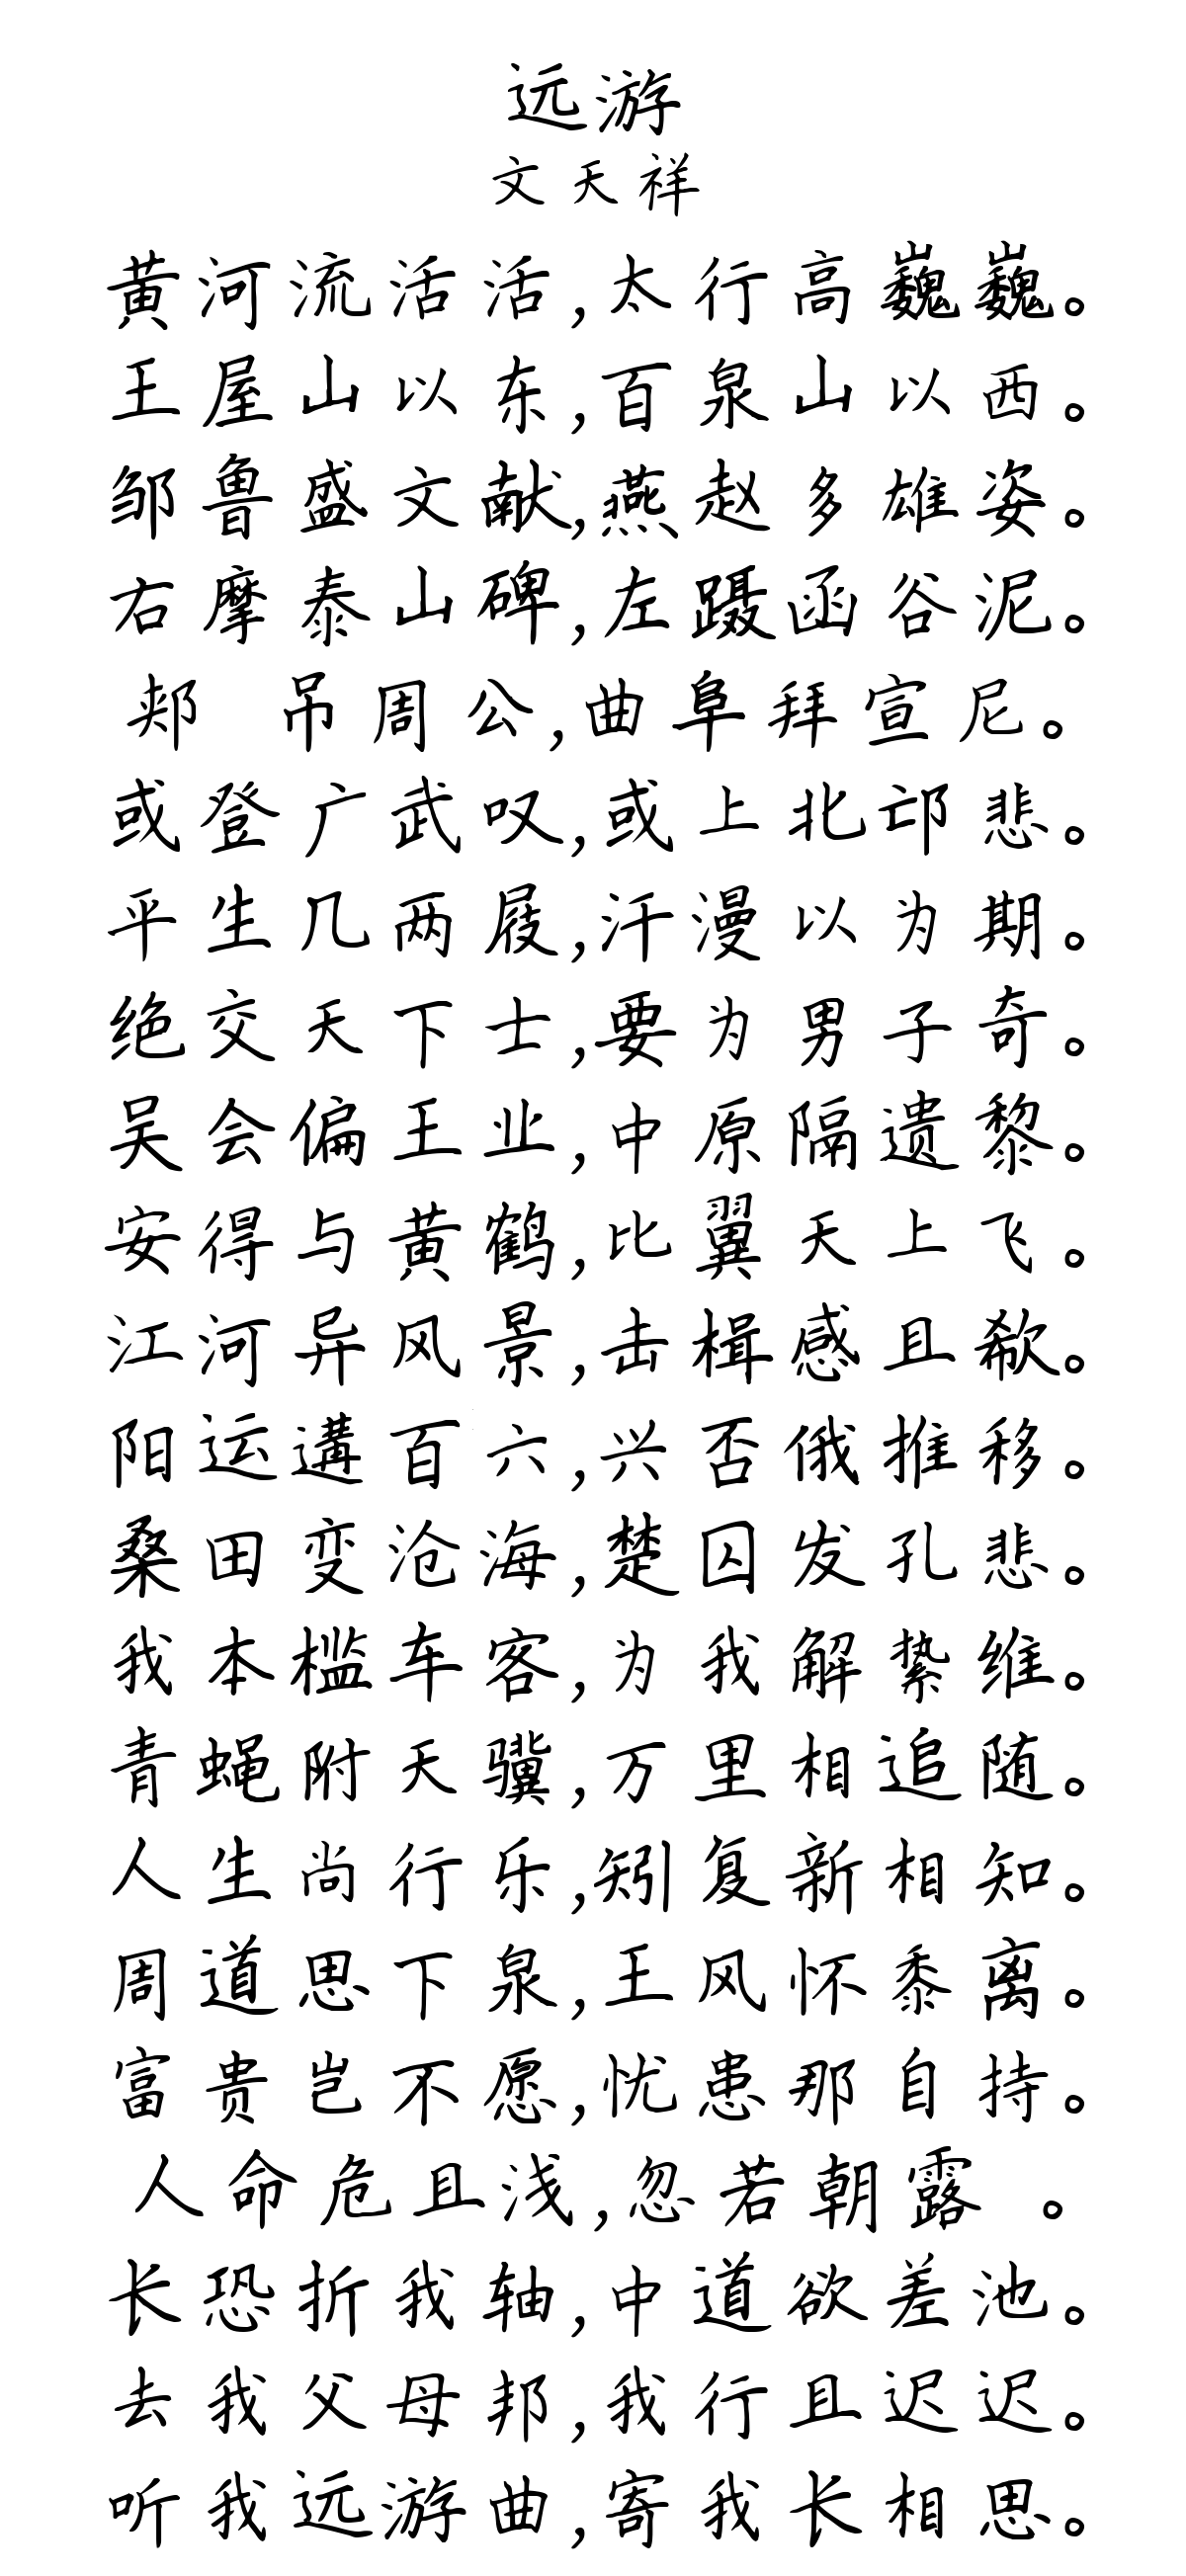 远游
文天祥
黄河流活活,太行高巍巍。
王屋山以东,百泉山以西。
邹鲁盛文献,燕赵多雄姿。
右摩泰山碑,左蹑函谷泥。
郏 吊周公,曲阜拜宣尼。
或登广武叹,或上北邙悲。
平生几两屐,汗漫以为期。
绝交天下士,要为男子奇。
吴会偏王业,中原隔遗黎。
安得与黄鹤,比翼天上飞。
江河异风景,击楫感且欷。
阳运遘百六,兴否俄推移。
桑田变沧海,楚囚发孔悲。
我本槛车客,为我解絷维。
青蝇附天骥,万里相追随。
人生尚行乐,矧复新相知。
周道思下泉,王风怀黍离。
富贵岂不愿,忧患那自持。
人命危且浅,忽若朝露 。
长恐折我轴,中道欲差池。
去我父母邦,我行且迟迟。
听我远游曲,寄我长相思。